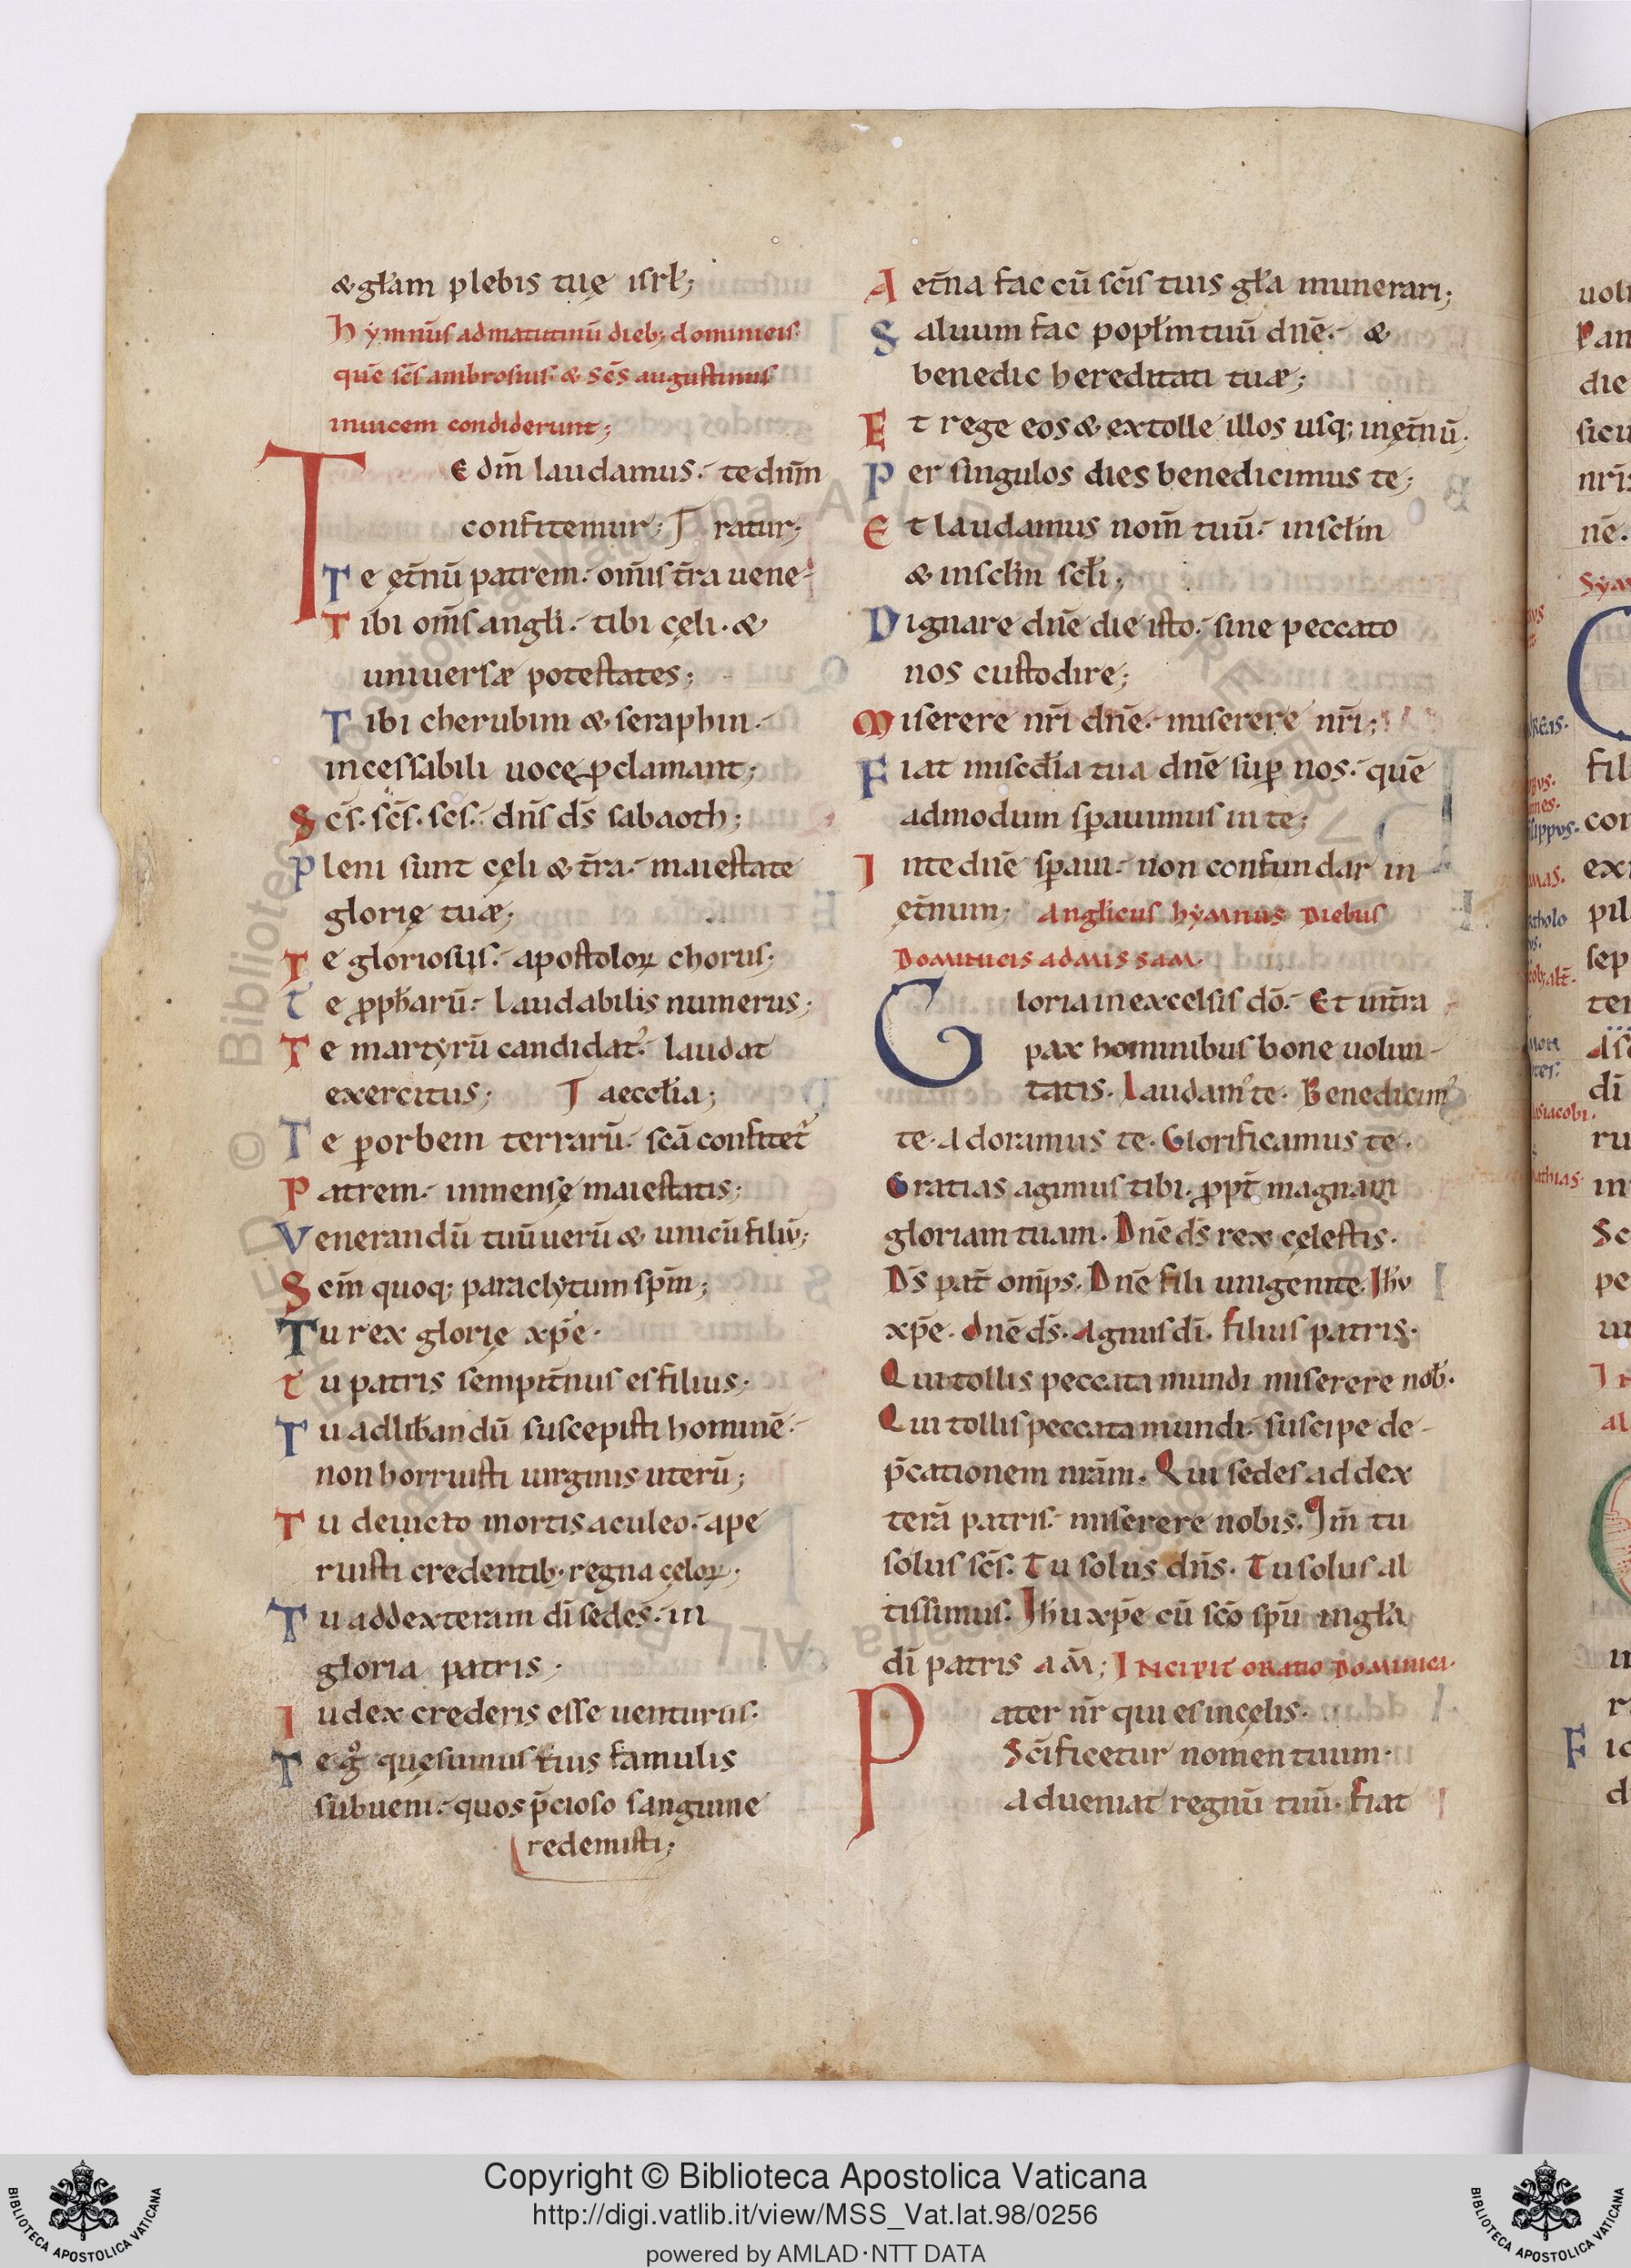 & głam plebis tuę isrł;
hẏmnus ad matutinū dieb; dominicis.
quē scs ambrosius & scs augustinus
inuicem condiderunt;
Te dm̄ laudamus. te dnm̄
confitemur; ratur;
Te ęt̄nū patrem. om̄is t̄ra uene-
Tibi om̄s angłi. tibi cęli. &
uniuersæ potestates;
Tibi cherubim & seraphin.
incessabili uocę ꝓclamant;
Scs̄. scs̄. scs̄. dn̄s ds̄ sabaoth;
Pleni sunt cęli & t̄ra. maiestate
glorię tuæ;
Te gloriosus. apostoloꝝ chorus.
Te ꝓpħarū. laudabilis numerus;
Te martyrū candidat'. laudat
exercitus; aeccłia;
Te ꝑ orbem terrarū. scā confitet'
Patrem. inmensę maiestatis;
Venerandū tuū uerū & unicū filiū;
Scm̄ quoq; paraclytum spm̄;
Tu rex glorię xp̄e.
Tu patris sempit̄nus es filius;
Tu ad liƀandū suscepisti hominē.
non horruisti uirginis uterū;
Tu deuicto mortis aculeo. ape
ruisti credentib; regna cęloꝝ;
Tu ad dexteram dī sedes. in
gloria patris.
Iudex crederis esse uenturus.
Te g° quęsumus tuis famulis
subueni. quos p̄cioso sanguine
redemisti;
Aet̄na fac cū scīs tuis gła munerari;
Saluum fac popłm tuū dnē. &
benedic hereditati tuæ;
Et rege eos & extolle illos usq; in ęt̄nū;
Per singulos dies benedicimus te;
Et laudamus nom̄ tuū. in scłm
& in scłm scłi;
Dignare dnē die isto. sine peccato
nos custodire;
Miserere nr̄i dnē. miserere nr̄i;
Fiat miscđia tua dnē suꝑ nos. quē
admodum sꝑauimus in te;
In te dnē sꝑaui. non confundar in
ęt̄num; Anglicus hẏmnus diebus
Dominicis ad missam.
Gloria in excelsis dō. Et in t̄ra
pax hominibus bone uolun-
tatis. Laudam' te. Benedicim'
te. Adoramus te. Glorificamus te.
Gratias agimus tibi. ꝓpt̄ magnam
gloriam tuam. Dnē ds̄ rex cęlestis.
Ds̄ pat̄ om̄ps. Dnē fili unigenite. Iħu
xp̄e. Dnē ds̄. Agnus dī. filius patris.
Qui tollis peccata mundi miserere noƀ.
Qui tollis peccata mundi. suscipe de-
p̄cationem nrām. Qui sedes ad dex
terā patris. miserere nobis. Qm̄ tu
solus scs̄. Tu solus dn̄s. Tu solus al
tissimus. Iħu xp̄e cū scō spū in gła
dī patris am̄; Incipit oratio dominica.
Pater nr̄ qui es in cęlis.
Scīficetur nomen tuum.
Adueniat regnū tuū. fiat
Copyright © Biblioteca Apostolica Vaticana
http://digi.vatlib.it/view/MSS_Vat.lat.98/0256
powered by AMLAD·NTT DATA
BIBLIOTECA APOSTOLICA VATICANA
BIBLIOTECA APOSTOLICA VATICANA